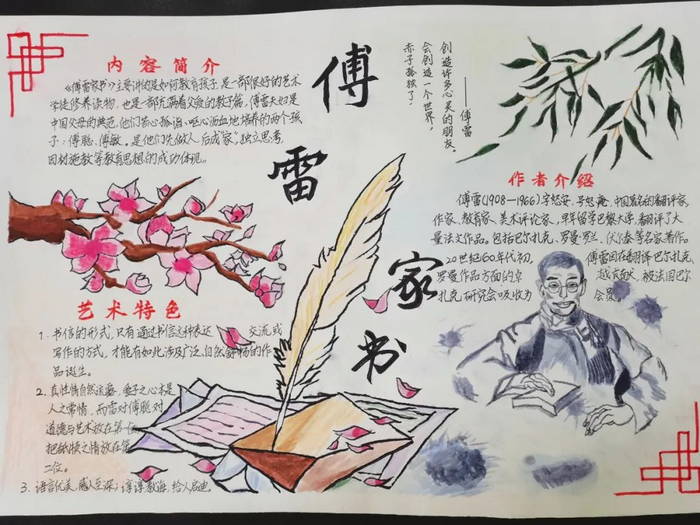 内容简介
《傅雷家书》主要讲的是如何教育孩子,是一部很好的艺术
学徒修养读物,也是一部充满着父爱的教子篇,傅雷夫妇是
中国父母的典范,他们苦心孤诣、呕心沥血地培养的两个孩
子:傅聪、傅敏。是他们先做人、后成家,独立思考,
因材施教等教育思想的成功体现。
傅雷家书
赤子孤独了,
会创造一个世界,
创造许多心灵的朋友。
——傅雷
作者介绍
傅雷(1908—1966)字怒安,号怒庵,中国著名的翻译家,
作家、教育家、美术评论家,早年留学巴黎大学,翻译了大
量法文作品。包括巴尔扎克、罗曼·罗兰、伏尔泰等名家著作。
20世纪60年代初, 傅雷因在翻译巴尔扎克、
罗曼作品方面的卓 越贡献,被法国巴尔
扎克研究会吸收为 会员。
艺术特色
1、书信的形式,只有通过书信这种表达 交流或
写作的方式,才能有如此涉及广泛、自然舒畅的作
品诞生。
2、真性情自然流露,爱子之心本是
人之常情,而雷对傅聪对
道德与艺术放在第一位
把舐犊之情放在第
二位。
3、语言优美,感人至深;谆谆教诲,给人启迪。